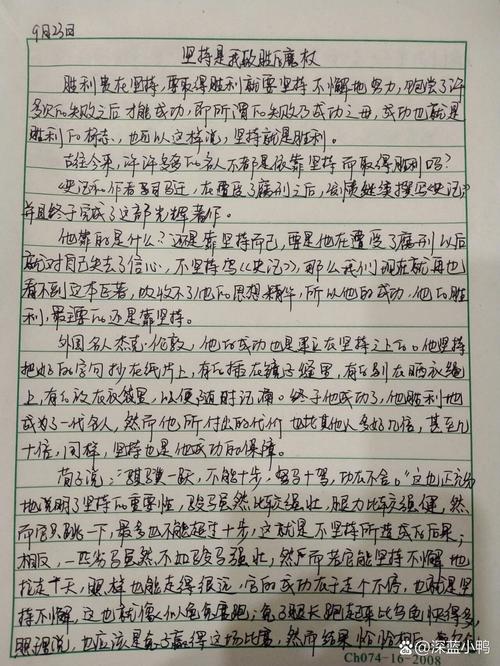 9月23日
坚持是我敢胜磨权
胜利贵在坚持，要取得胜利就要坚持不懈地努力，饱尝了许
多次的失败之后才能成功，即所谓的失败乃成功之母，成功也就是
胜利的标志，也可以这样说，坚持就是胜利。
古往今来，许许多多的名人不都是依靠坚持而取得胜利吗？
《史记》的作者司马迁，在遭受了腐刑之后，发愤继续撰写《史记》，
并且终于完成了这部光辉著作。
他靠的是什么？还是靠坚持而已，要是他在遭受了腐刑以后
就对自己失去了信心，不坚持写《史记》，那么我们现在就再也
看不到这本巨著，吸收不了他的思想精华，所以他的成功，他的胜
利，最主要的还是靠坚持。
外国名人杰克·伦敦，他的成功也是建立在坚持之上的。他坚持
把好的房间抄在纸片上，有的插在镜子缝里，有的别在晒衣绳
上，有的放在衣袋里，以便随时记诵。终于他成功了，他胜利地
成为了一代名人，然而他所付出的代价也比其他人多好几倍，甚至几
十倍，同样，坚持也是他成功的保障。
荀子说：“骐骥一跃，不能十步，驽马十驾，功在不舍。”这也正充分
地说明了坚持的重要性，骏马虽然比较强壮，腿力比较强健，然
而它只跳一下，最多也不能超过十步，这就是不坚持所造成的后果；
相反，一匹劣马虽然不如骏马强壮，然而若它能坚持不懈地
拉走十天，照样也能走得很远，它的成功在于走个不停，也就是坚
持不懈，这也就像似龟兔赛跑；兔子腿长跑起来比乌龟快得多，
照理说，也应该是兔子赢得这场比赛，然而结果恰恰相反
Ch074-10-2008
@深蓝小鸭